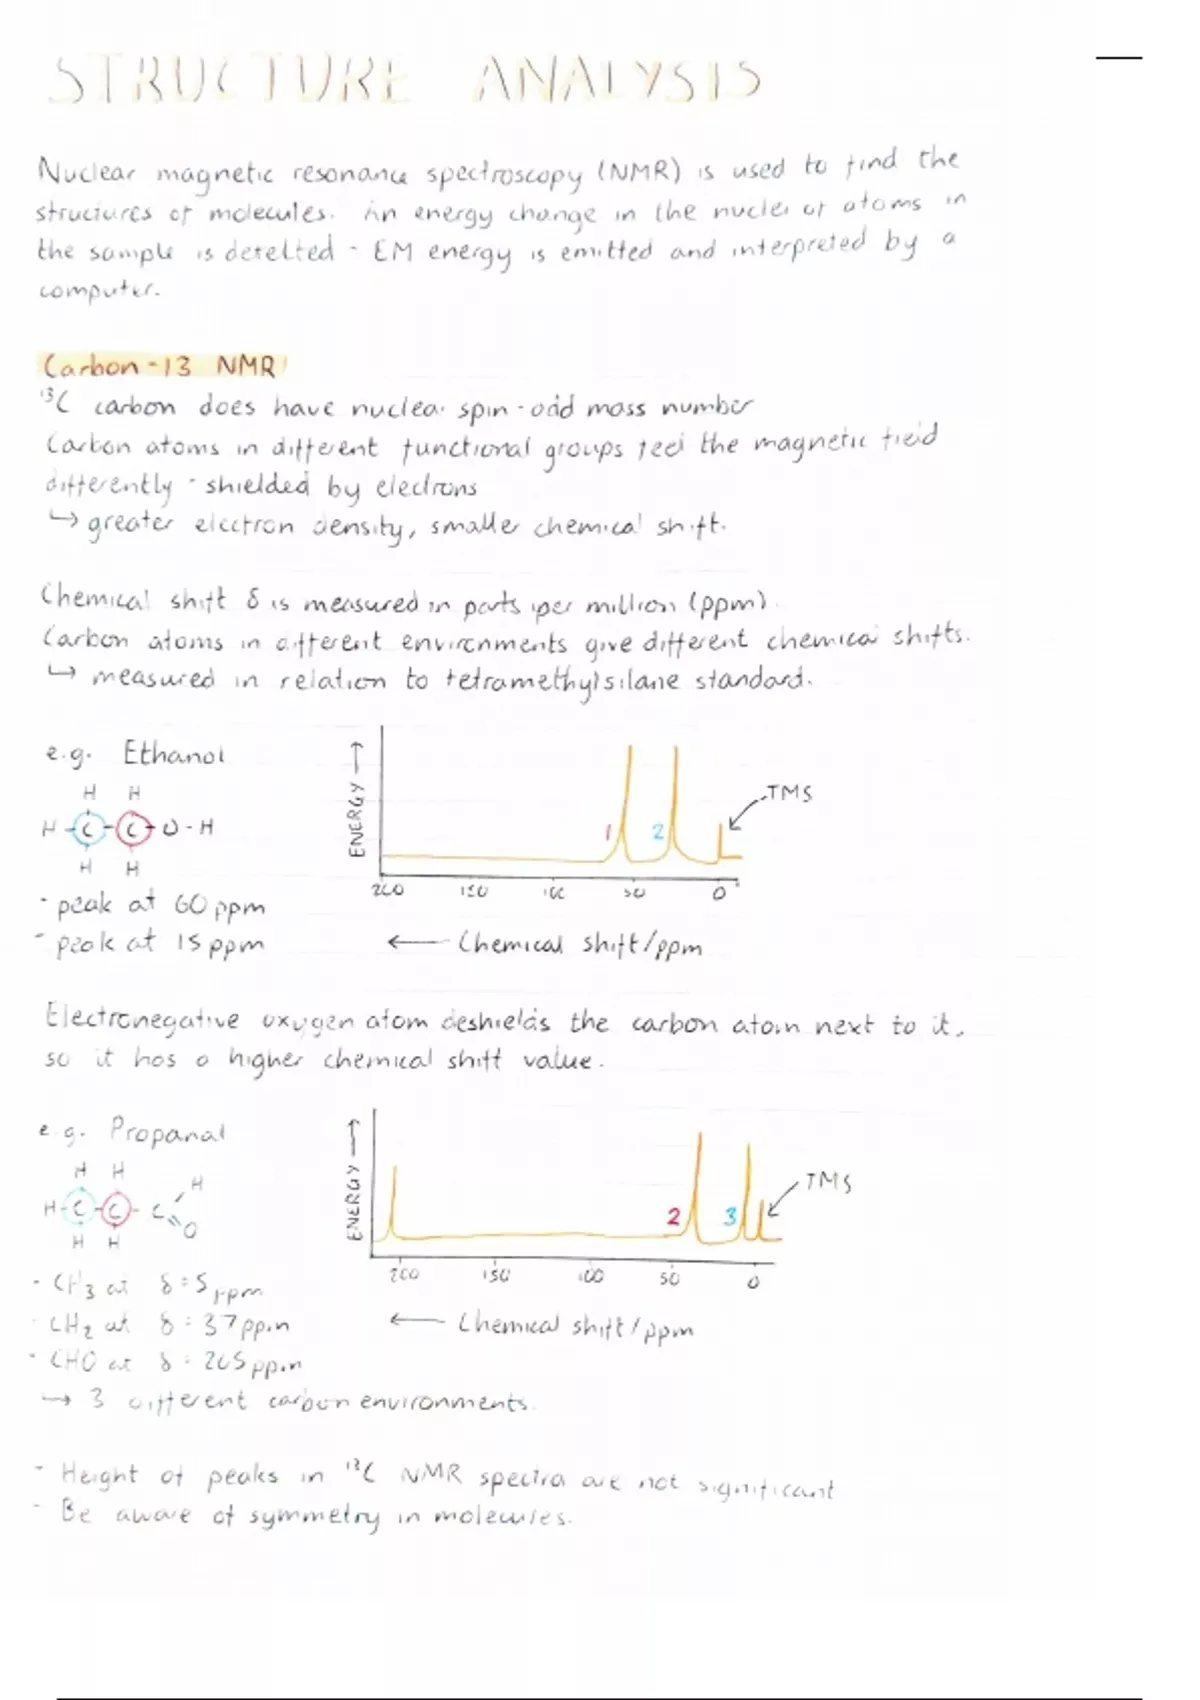 STRUCTURE ANALYSIS
Nuclear magnetic resonance spectroscopy (NMR) is used to find the
structures of molecules. An energy change in the nuclei of atoms in
the sample is detected - EM energy is emitted and interpreted by a
computer.
Carbon-13 NMR
¹³C carbon does have nuclear spin - odd mass number
Carbon atoms in different functional groups feel the magnetic field
differently - shielded by electrons
↳ greater electron density, smaller chemical shift.
Chemical shift δ is measured in parts per million (ppm).
Carbon atoms in different environments give different chemical shifts.
↳ measured in relation to tetramethylsilane standard.
e.g. Ethanol
H H
H - C - C - O - H
H H
- peak at 60 ppm
- peak at 15 ppm
ENERGY →
1 2
TMS
200 150 100 50 0
← Chemical shift/ppm
Electronegative oxygen atom deshields the carbon atom next to it,
so it has a higher chemical shift value.
e.g. Propanal
H H H
H - C - C - C
O
H H
- CH3 at δ = 5 ppm
- CH2 at δ = 37 ppm
- CHO at δ = 205 ppm
→ 3 different carbon environments.
ENERGY →
2 3
TMS
200 150 100 50 0
← Chemical shift/ppm
- Height of peaks in ¹³C NMR spectra are not significant
- Be aware of symmetry in molecules.